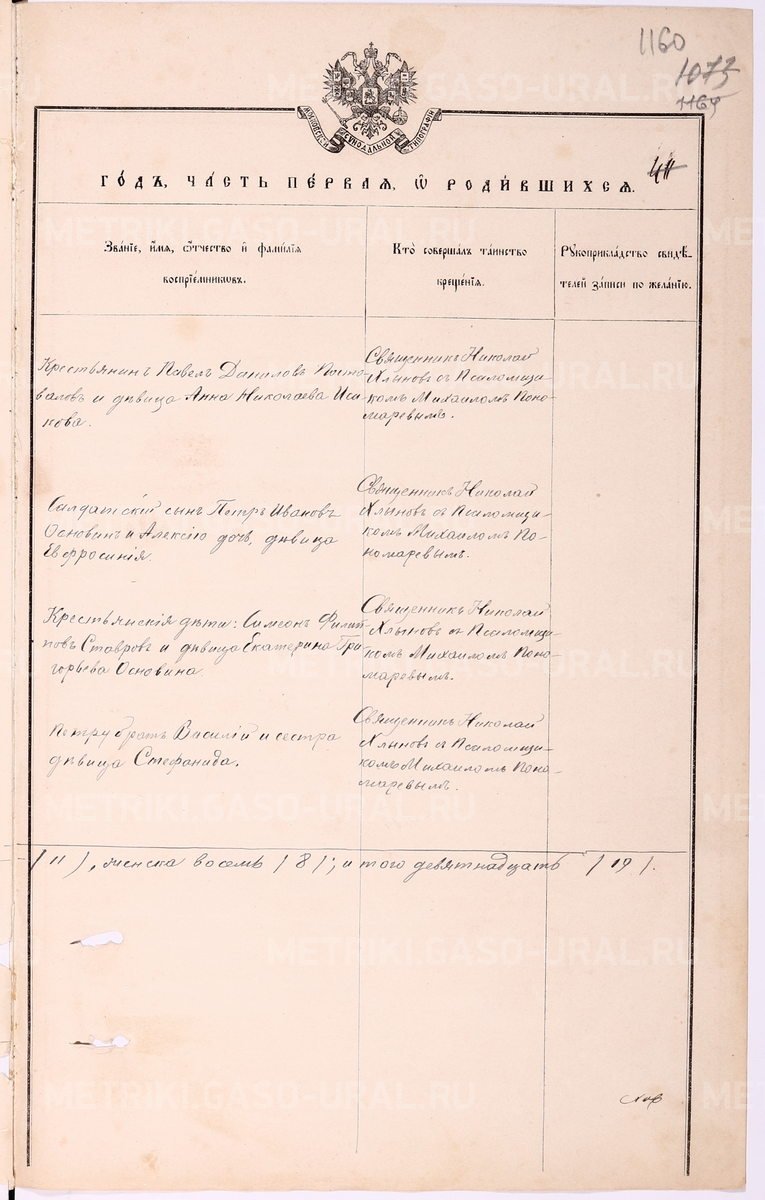 1160
1073
1164
МОСКОВСКОЙ СѴНОДАЛЬНОЙ ТИПОГРАФІИ
ГО́ДЪ, ЧА́СТЬ ПЕ́РВАЯ, Ѡ҆ РОДИ́ВШИХСЯ.
Зва́ніе, и҆́мя, ѻ҆́тчество и҆ фами́лія
воспріе́мниковъ.
Кто̀ соверша́лъ та́инство
креще́нія.
Рꙋкоприкла́дство свидѣ́-
телей за́писи по жела́нію.
Крестьянинъ Павелъ Даниловъ Посто-
валовъ и дѣвица Анна Николаева Иса-
кова.
Священникъ Николай
Хлыновъ съ Псаломщи-
комъ Михаиломъ Поно-
маревымъ.
Солдатскій сынъ Петръ Ивановъ
Основинъ и Алексію дочь, дѣвица
Евфросинія.
Священникъ Николай
Хлыновъ съ Псаломщи-
комъ Михаиломъ По-
номаревымъ.
Крестьянскія дѣти: Симеонъ Филип-
повъ Ставровъ и дѣвица Екатерина Гри-
горьева Основина.
Священникъ Николай
Хлыновъ съ Псаломщи-
комъ Михаиломъ Поно-
маревымъ.
Петру братъ Василій и сестра
дѣвица Стефанида.
Священникъ Николай
Хлыновъ съ Псаломщи-
комъ Михаиломъ Поно-
маревымъ.
/ 11 /, женска восемь / 8 /; и того девятнадцать / 19 /.
METRIKI.GASO-URAL.RU